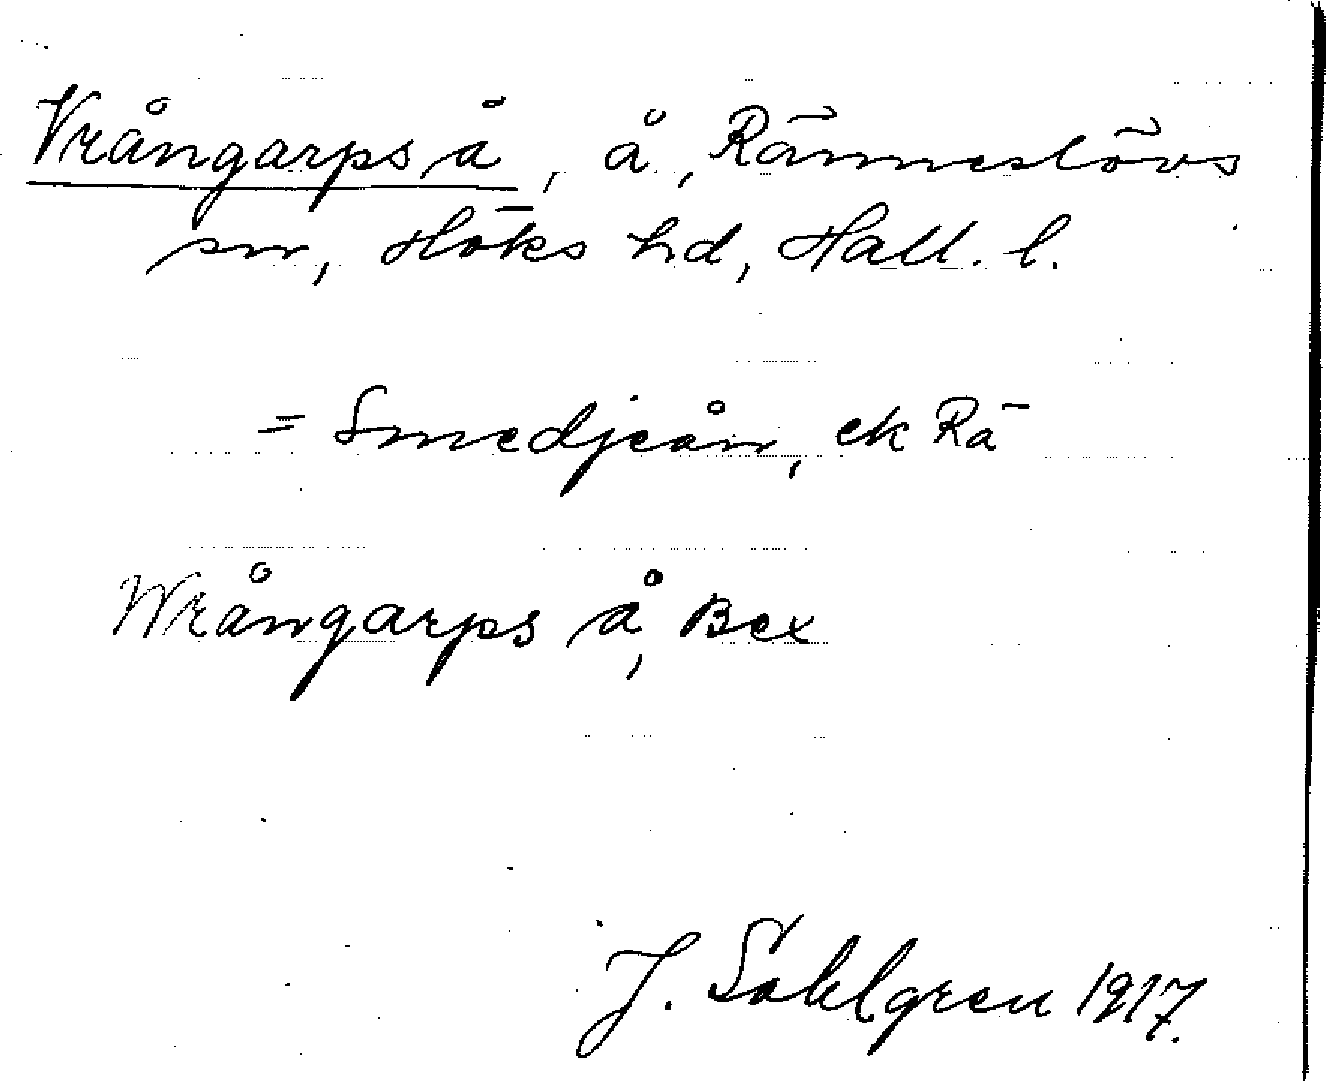 Vrångarps å, å, Ränneslövs
sn, Höks hd, Hall. l.
= Smedjeån, ek Rä
Wrångarps å, Bex
J. Sahlgren 1917.